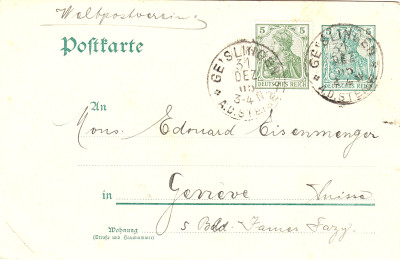 Weltpostverein
Postkarte
5 5
DEUTSCHES REICH
GEISLINGEN
31
DEZ
05
3-4 N
A.D. STEIG
5 5
DEUTSCHES REICH
GEISLINGEN
31
DEZ
05
A.D. STEIG
An
Mons. Edouard Eisenmenger
in Genève Suisse
Wohnung
(Straße und Hausnummer)
5 Bld. James Fazy.